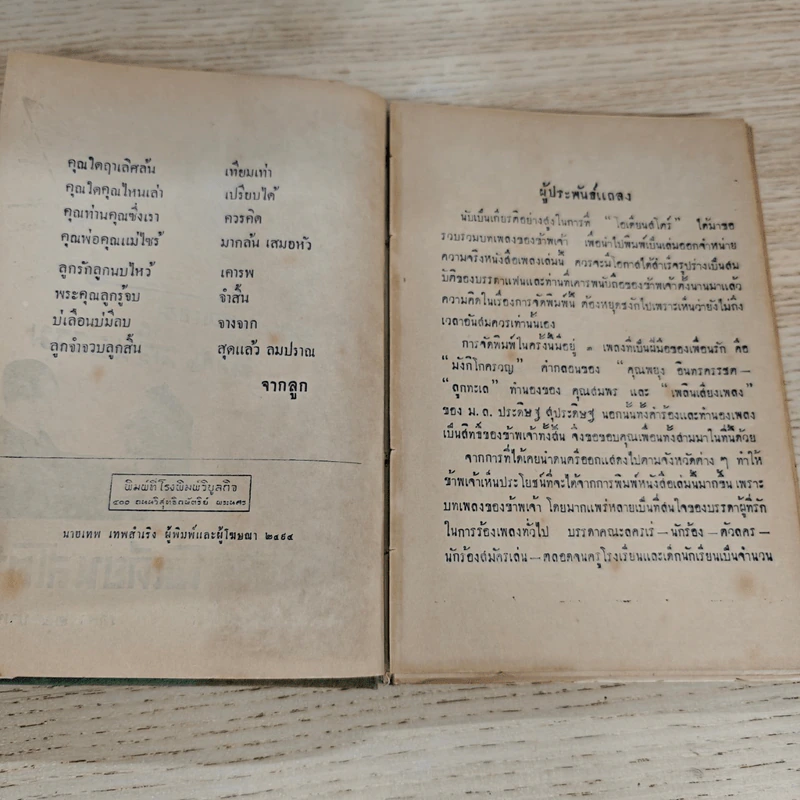 คุณใดฤาเลิศล้น เทียมเท่า
คุณใดคุณไหนเล่า เปรียบได้
คุณท่านคุณซึ่งเรา ควรคิด
คุณพ่อคุณแม่ไซร้ มากล้น เสมอหัว
ลูกรักลูกนบไหว้ เคารพ
พระคุณลูกรู้จบ จำสิ้น
บ่เลือนบ่มีลบ จางจาก
ลูกจำจวบลูกสิ้น สุดแล้ว ลมปราณ
จากลูก
พิมพ์ที่โรงพิมพ์วิบูลกิจ
๔๐๐ ถนนวิสุทธิกษัตริย์ พระนคร
นายเทพ เทพสำเริง ผู้พิมพ์และผู้โฆษณา ๒๔๙๔
ผู้ประพันธ์แถลง
นับเป็นเกียรติอย่างสูงในการที่ "โอเดียนสโตร์" ได้มาขอ
รวบรวมบทเพลงของข้าพเจ้า เพื่อนำไปพิมพ์เป็นเล่มออกจำหน่าย
ความจริงหนังสือเพลงเล่มนี้ ควรจะมีโอกาสได้สำเร็จรูปร่างเป็นสม
บัติของบรรดาแฟนและท่านที่เคารพนับถือของข้าพเจ้าตั้งนานมาแล้ว
ความคิดในเรื่องการจัดพิมพ์นี้ ต้องหยุดชงักไปเพราะเห็นว่ายังไม่ถึง
เวลาอันสมควรเท่านั้นเอง
การจัดพิมพ์ในครั้งนี้มีอยู่ ๓ เพลงที่เป็นฝีมือของเพื่อนรัก คือ
"มังกิโกครวญ" คำกลอนของ "คุณพยุง อินทครรชิต–
"ลูกทะเล" ทำนองของ คุณสมพร และ "เพลินเสียงเพลง"
ของ ม.ล. ประดิษฐ สุประดิษฐ นอกนั้นทั้งคำร้องและทำนองเพลง
เป็นสิทธิ์ของข้าพเจ้าทั้งสิ้น จึงขอขอบคุณเพื่อนทั้งสามมาในที่นี้ด้วย
จากการที่ได้เคยนำดนตรีออกแสดงไปตามจังหวัดต่าง ๆ ทำให้
ข้าพเจ้าเห็นประโยชน์ที่จะได้จากการพิมพ์หนังสือเล่มนี้มากขึ้น เพราะ
บทเพลงของข้าพเจ้า โดยมากแพร่หลายเป็นที่สนใจของบรรดาผู้ที่รัก
ในการร้องเพลงทั่วไป บรรดาคณะละครเร่–นักร้อง–ตัวละคร–
นักร้องสมัครเล่น–ตลอดจนครูโรงเรียนและเด็กนักเรียนเป็นจำนวน